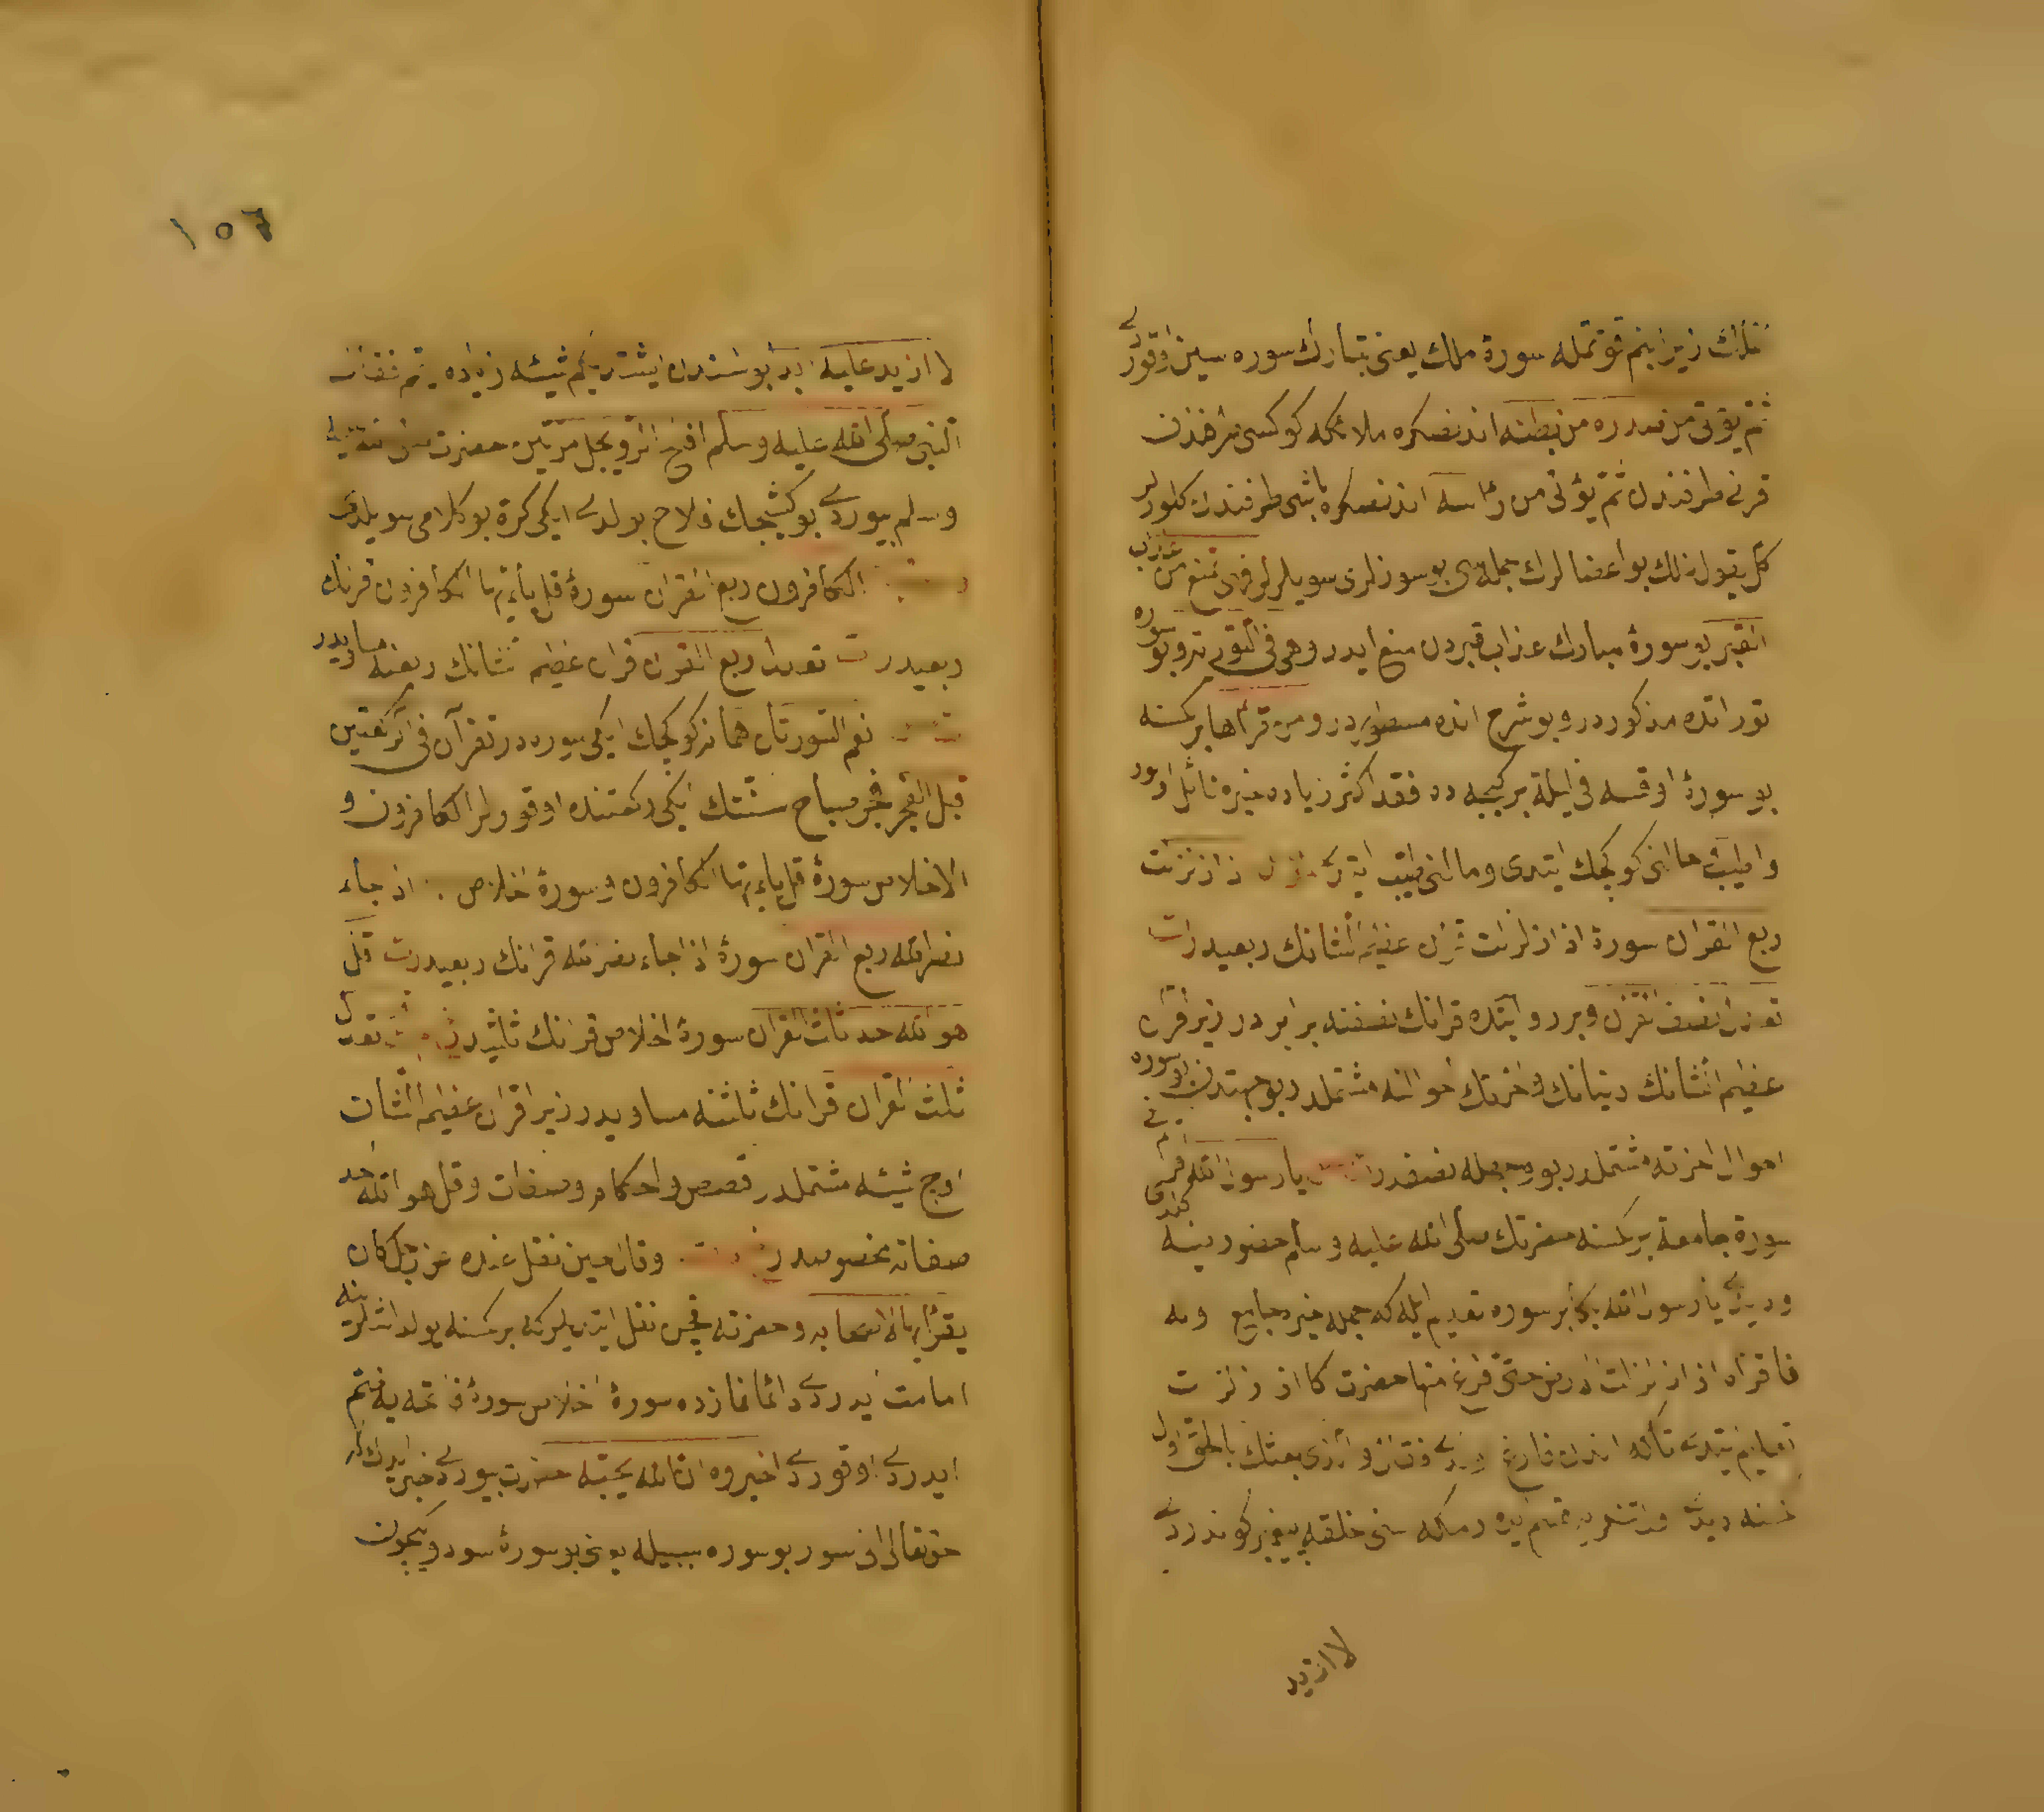 زیرا بنم قوتمله سورهٔ ملك یعنی تبارك سوره سین اوقوردی
ثم یؤتی من صدره من بطنه اندنصکره ملائکه کوکسی طرفندن
قرنی طرفندن ثم یؤتی من رأسه اندنصکره باشی طرفندن کلورلر
کل یقول ذلك بو اعضالرك جمله سی بو سوزلری سویلرلر فهی تمنع من عذاب
القبر بو سورهٔ مبارك عذاب قبردن منع ایدر وهی فی التوریة وبو سوره
توراتده مذکوردر وبو شرح انده مسطوردر ومن قرأها بر کمسنه
بو سورهٔ اوقسه فی لیلة بر کیجه ده فقد اکثر زیاده خیره نائل اولور
واطیب حالنی کوکجك ایتدی وحالنی طیب ایتدی اذا زلزلت
ربع القران سورهٔ اذا زلزلت قران عظیم الشانك ربعیدر ت
تعدل نصف القران وبر روایتده قرانك نصفنه برابردر زیرا قران
عظیم الشانك دنیانك واخرتك احوالنه مشتملدر بوجهتدن بو سوره
احوال اخرته مشتملدر بو وجهله نصفدر یا رسول الله اقرئنی
سورة جامعة بر کمسنه حضرتك صلی الله علیه وسلم حضورینه کلدی
ودیدی یا رسول الله بکا بر سوره تعلیم ایله که جمله خیره جامع اوله
فاقرأه اذا زلزلت الارض حتی فرغ منها حضرت کا اذا زلزلت
تعلیم ایتدی تاکه اندن فارغ اولدی فقال والذی بعثك بالحق اول
کمسنه دیدی قسم ایدرمکه سنی خلقه پیغمبر کوندردی
لا ازید
١٥٦
لا ازید علیه ابدا بوسندن ایشتدیکم شیئه زیاده ایتمم فقال
النبی صلی الله علیه وسلم افلح الرویجل مرتین حضرت صلی الله علیه
وسلم بیوردی بوکشیجك فلاح بولدی ایکی کرة بو کلامی سویلدی
الکافرون ربع القران سورهٔ قل یا ایها الکافرون قرانك
ربعیدر ت تعدل ربع القران قران عظیم الشانك ربعنه مساویدر
نعم السورتان همانه کوکجك ایکی سوره در تقرآن فی الرکعتین
قبل الفجر فجر صباح سنتنك ایکی رکعتنده اوقورلر الکافرون و
الاخلاص سورهٔ قل یا ایها الکافرون و سورهٔ اخلاص اذا جاء
نصر الله ربع القران سورهٔ اذا جاء نصر الله قرانك ربعیدر ت قل
هو الله احد ثلث القران سورهٔ اخلاص قرانك ثلثیدر تعدل
ثلث القران قرانك ثلثنه مساویدر زیرا قران عظیم الشان
اوج شیئه مشتملدر قصص واحکام وصفات وقل هو الله احد
صفاته مخصوصدر وقال حین نقل عنده عن رجل کان
یقرأ بها لاصحابه وحضرته فجن نقل ایتدیلرکه بر کمسنه یولداشلرینه
امامت ایدردی دائما نمازده سورهٔ اخلاص سورهٔ فاتحه یه ضم
ایدردی اوقوردی اخبروه ان الله یحبه حضرت بیوردی خبر ایدك که
حق تعالی انی سور بو سوره سببیله یعنی بو سورهٔ سودویکیچون